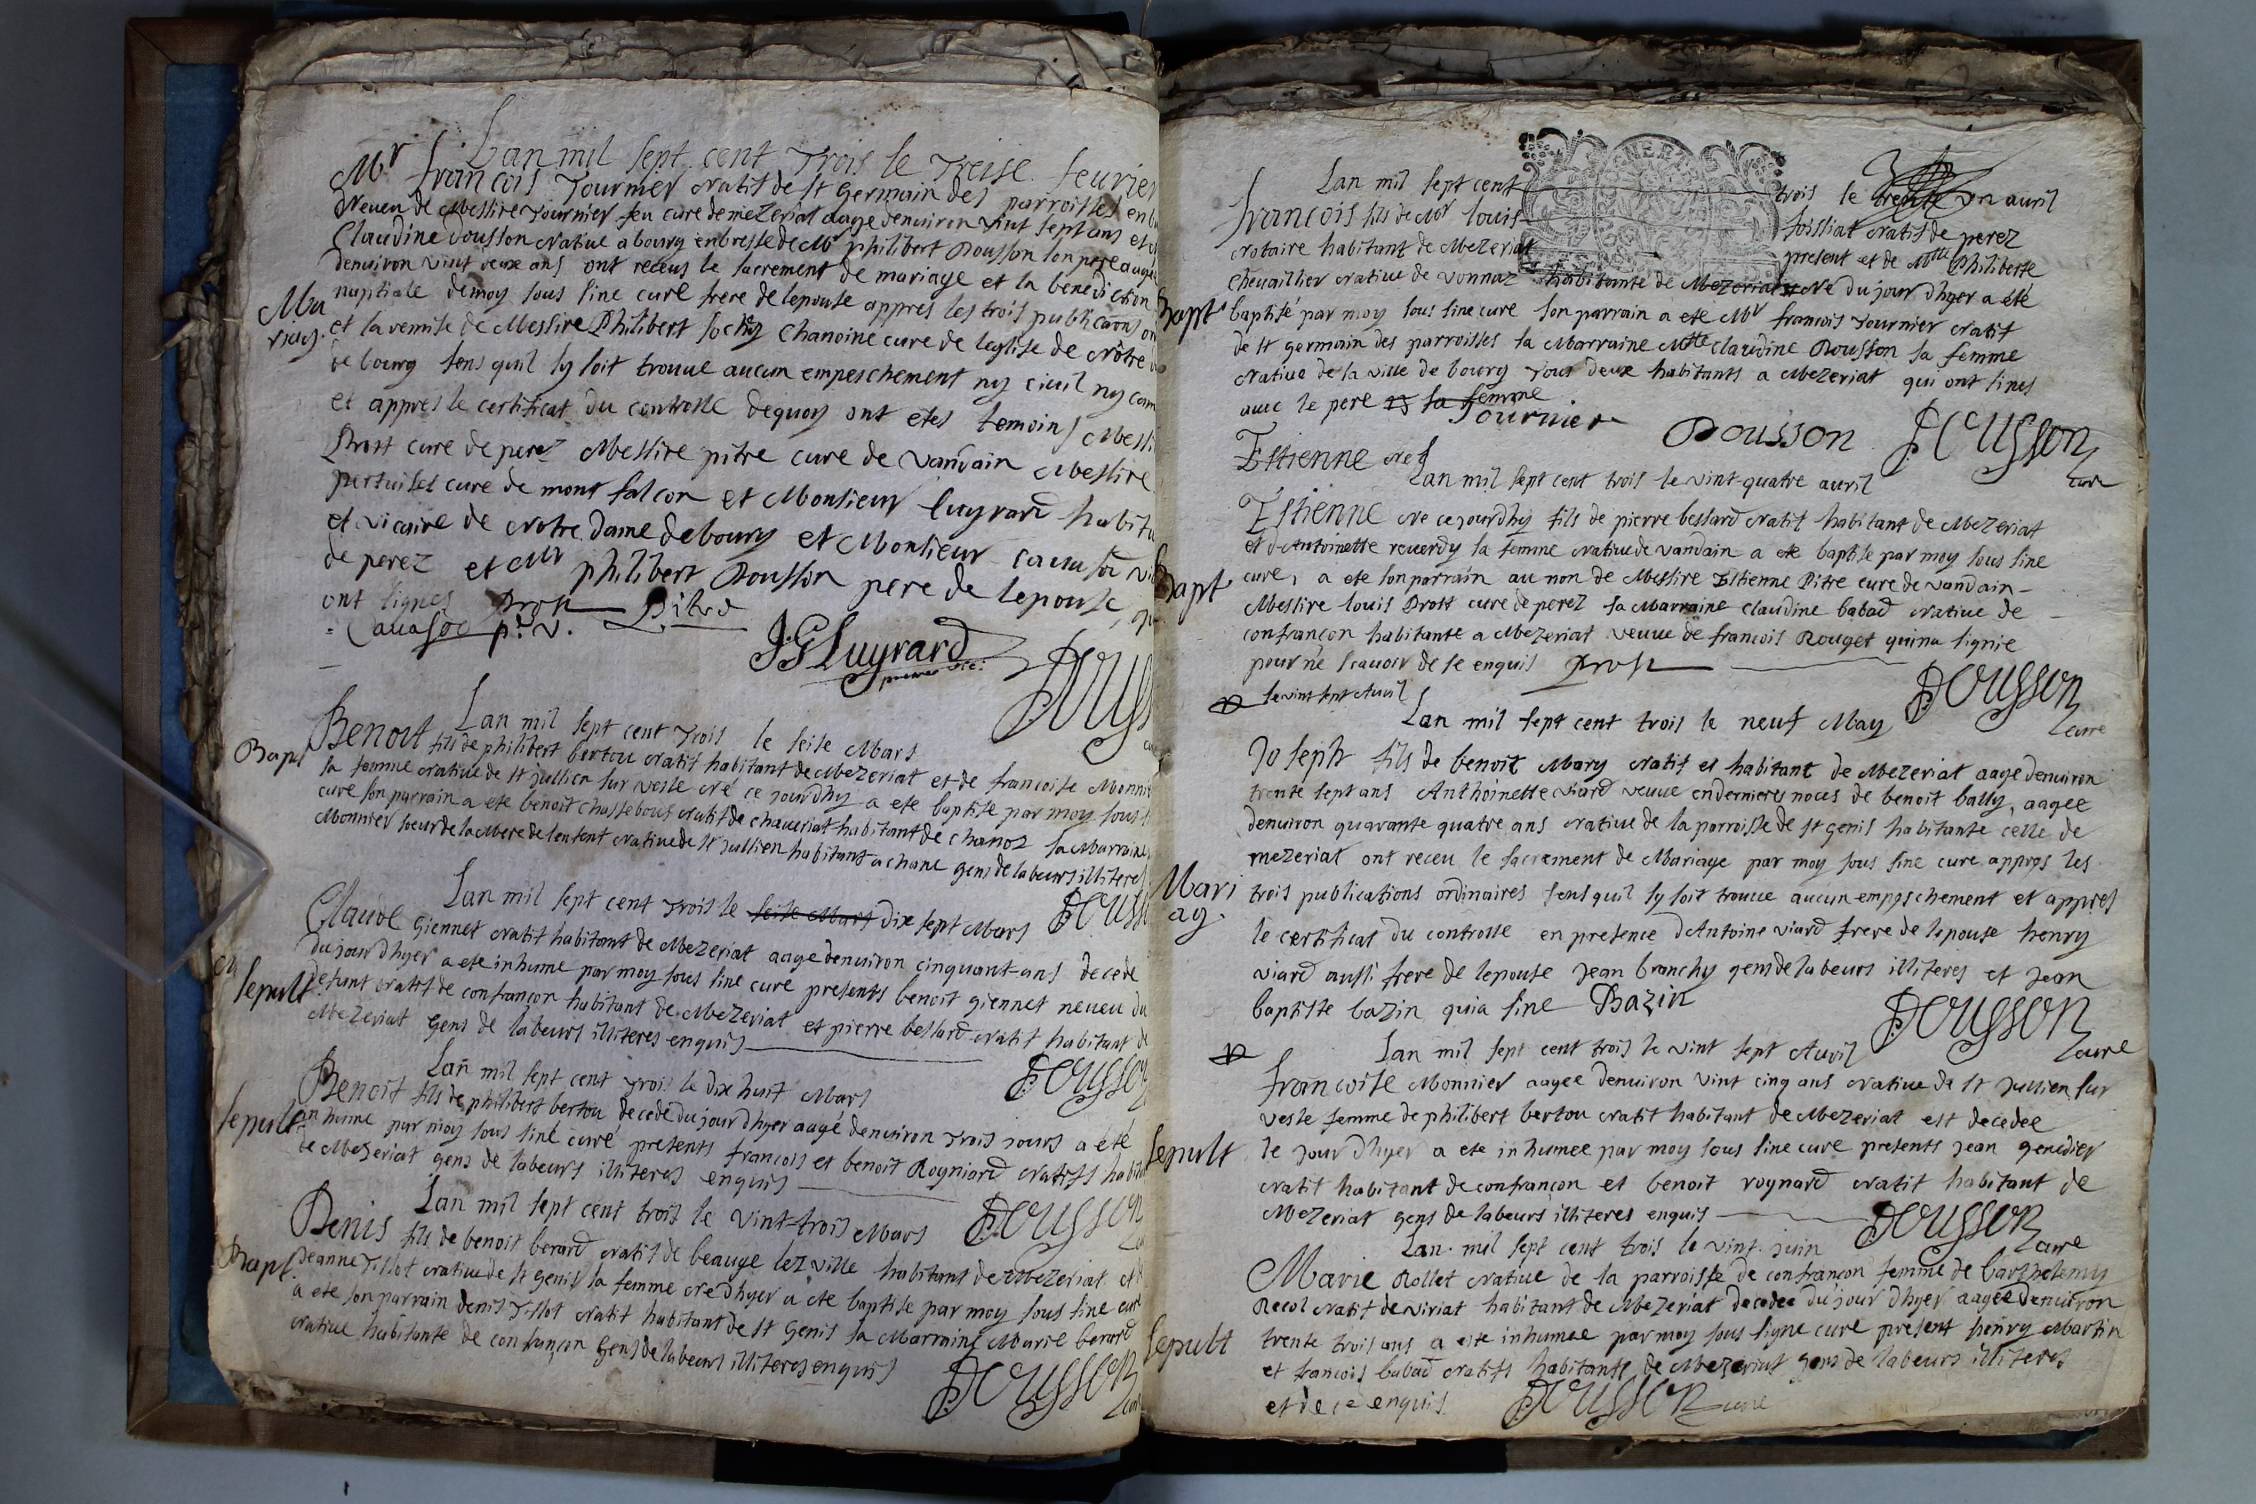 Lan mil sept cent trois le treise feurier
Mr francois Tournier natif de st Germain des parroisses en
Neueu de Messire Tournier feu cure de mezeriat aage denuiron vint sept ans et
Claudine Dousson natiue a bourg en bresse de Mr philibert Dousson son pere aagee
denuiron vint deux ans ont receus le sacrement de mariage et la benediction
nuptiale de moy sous sine cure frere de lepouse appres les trois publicaons
Ma
riag.
et la remise de Messire Philibert Chanoine cure de leglise de Nôtre
de bourg sens quil sy soit trouue aucun empeschement ny ciuil ny
et appres le certificat du controlle dequoy ont etes temoins Messi
Prost cure de perez Messire pitre cure de vandain Messire
cure de mont falcon et Monsieur luyrard habitu
et vicaire de notre dame de bourg et Monsieur
de perez et Mr philibert Dousson pere de lepouse
ont signes Prost Pitre
Cauasod p. v. J G Luyrard
premier vic:
Douss
Lan mil sept cent trois le seise Mars
Bapt
Benoit fils de philibert bertou natif habitant de Mezeriat et de francoise Monni
sa femme natiue de st jullien sur vesle né ce jourdhuy a ete baptise par moy sous
cure son parrain a ete benoit chassebous natif de chaueriat habitant de chanoz sa Marraine
Monnier soeur de la Mere de lenfent natiue de st jullien habitant a chane gens de labeurs illiteres
Douss
Lan mil sept cent trois le seise Mars dix sept Mars
Claude Giennet natif habitant de Mezeriat aage denuiron cinquant ans decede
du jour dhyer a ete inhume par moy sous sine cure presents benoit giennet neueu du
sepult
defunt natif de confrancon habitant de Mezeriat et pierre bessard natif habitant de
Mezeriat gens de labeurs illiteres enquis
Dousson
Lan mil sept cent trois le dix huit Mars
Benoit fils de philibert bertou decede du jour dhyer aagé denuiron trois jours a été
sepult
inhume par moy sous siné curé presents francois et benoit Rogniard natifs habit
de Mezeriat gens de labeurs illiteres enquis
Dousson
Lan mil sept cent trois le vint trois Mars
Denis fils de benoit berard natif de beauge lez ville habitant de Mezeriat et
Bapt
jeanne Tissot natiue de st genis sa femme né dhyer a ete baptise par moy sous sine cure
a ete son parrain denis Tissot natif habitant de st Genis sa Marraine Marie berard
natiue habitante de confrancon Gens de labeurs illiteres enquis
Dousson
Lan mil sept cent trois le vn auril
francois fils de Mr louis foissiat natif de perez
notaire habitant de Mezeriat present et de Mlle Philiberte
Cheuaillier natiue de vonnaz habitante de Mezeriat né du jour dhyer a été
Bapt
baptisé par moy sous sine cure son parrain a ete Mr francois Tournier natif
de st germain des parroisses sa Marraine Mlle Claudine Dousson sa femme
natiue de la ville de bourg tous deux habitants a Mezeriat qui ont sines
auec le pere sa femme
Tournier Dousson Dousson
cure
Estienne né
Lan mil sept cent trois le vint quatre auril
Estienne né ce jourdhy fils de pierre bessard natif habitant de Mezeriat
et dAntoinette reuerdy sa femme natiue de vandain a ete baptise par moy sous sine
Bapt
cure, a ete son parrain au non de Messire Estienne Pitre cure de vandain
Messire louis Prost cure de perez sa Marraine Claudine babad natiue de
confrançon habitante a Mezeriat veuue de francois Rouget qui na signie
pour ne scauoir de se enquis Prost
Dousson
cure
le vint sept Auril
Lan mil sept cent trois le neuf May
Joseph fils de benoit Mary natif et habitant de Mezeriat aage denuiron
trente sept ans Anthoinette viard veuue en dernieres noces de benoit bally, aagee
denuiron quarante quatre ans natiue de la parroisse de st genis habitante celle de
mezeriat ont receu le sacrement de Mariage par moy sous sine cure appres les
Mari
ag.
trois publications ordinaires sens quil sy soit trouue aucun empeschement et appres
le certificat du controlle en presence dAntoine viard frere de lepouse henry
viard aussi frere de lepouse jean branchy gens de labeurs illiteres et jean
baptiste bazin qui a sine Bazin
Dousson
cure
Lan mil sept cent trois le vint sept Auril
francoise Monnier aagee denuiron vint cinq ans natiue de st jullien sur
vesle femme de philibert bertou natif habitant de Mezeriat est decedee
sepult
le jour dhyer a ete inhumee par moy sous sine cure presents jean genedier
natif habitant de confrançon et benoit roynard natif habitant de
Mezeriat gens de labeurs illiteres enquis
Dousson
cure
Lan mil sept cent trois le vint juin
Marie Rollet natiue de la parroisse de confrancon femme de barthelemy
Recol natif de viriat habitant de Mezeriat decedee du jour dhyer aagée denuiron
sepult
trente trois ans a este inhumee par moy sous signe cure present henry Martin
et francois babad natifs habitants de Mezeriat gens de labeurs illiteres
et de ce enquis Dousson cure